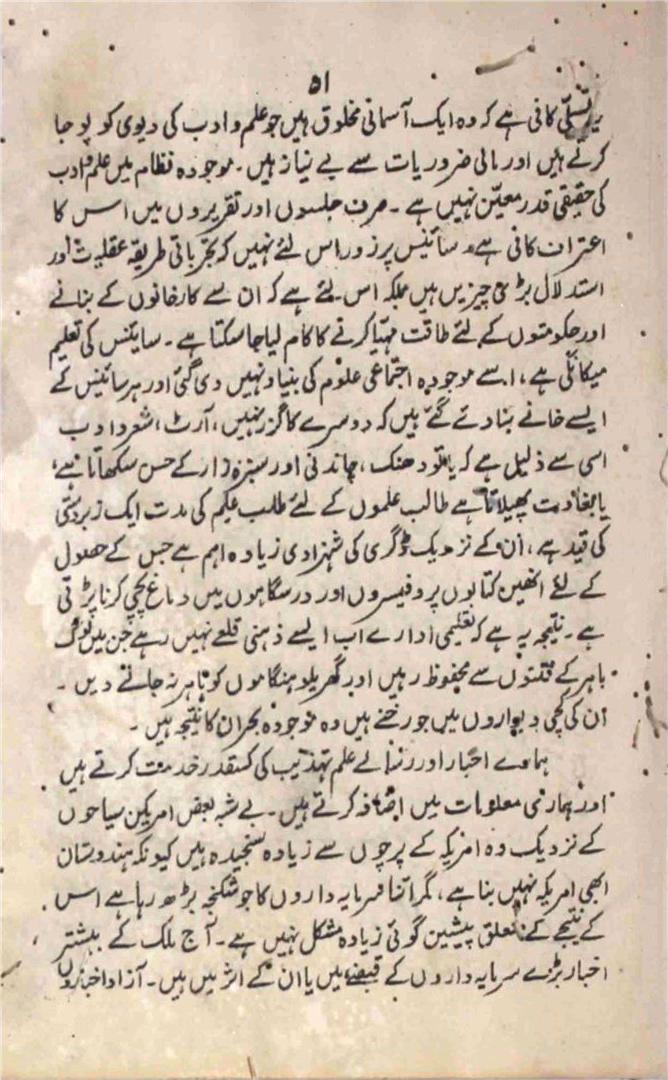 ۵۱
یہ تسلّی کافی ہے کہ وہ ایک آسمانی مخلوق ہیں جو علم و ادب کی دیوی کو پوجا
کرتے ہیں اور مالی ضروریات سے بے نیاز ہیں۔ موجودہ نظام میں علم و ادب
کی حقیقی قدر معیّن نہیں ہے۔ صرف جلسوں اور تقریروں میں اس کا
اعتراف کافی ہے، سائینس پر زور اس لئے نہیں کہ تجرباتی طریقہ عقلیت اور
استدلال بڑی چیزیں ہیں بلکہ اس لئے ہے کہ ان سے کارخانوں کے بنانے
اور حکومتوں کے لئے طاقت مہیّا کرنے کا کام لیا جا سکتا ہے۔ سائینس کی تعلیم
میکانکی ہے، اسے موجودہ اجتماعی علوم کی بنیاد نہیں دی گئی اور ہر سائینس کے
ایسے خانے بنا دئے گئے ہیں کہ دوسرے کا گزر نہیں، آرٹ، شعر و ادب
اسی سے ذلیل ہے کہ یا تو دھنک، چاندنی اور سبزہ زار کے حسن سکھاتا ہے،
یا بغاوت پھیلاتا ہے طالب علموں کے لئے طلب علم کی مدت ایک زبردستی
کی قید ہے، ان کے نزدیک ڈگری کی شہزادی زیادہ اہم ہے جس کے حصول
کے لئے انھیں کتابوں پروفیسروں اور درسگاہوں میں دماغ پچی کرنا پڑتی
ہے۔ نتیجہ یہ ہے کہ تعلیمی ادارے اب ایسے ذہنی قلعے نہیں رہے جن میں لوگ
باہر کے فتنوں سے محفوظ رہیں اور گھریلو ہنگاموں کو باہر نہ جانے دیں۔
ان کی کچی دیواروں میں جو رخنے ہیں وہ موجودہ بحران کا نتیجہ ہیں۔
ہمارے اخبار اور رسالے علم تہذیب کی کسقدر خدمت کرتے ہیں
اور ہماری معلومات میں اضافہ کرتے ہیں۔ بے شبہ بعض امریکن سیاحوں
کے نزدیک وہ امریکہ کے پرچوں سے زیادہ سنجیدہ ہیں کیونکہ ہندوستان
ابھی امریکہ نہیں بنا ہے، مگر اتنا سرمایہ داروں کا جو شکنجہ بڑھ رہا ہے اس
کے نتیجے کے متعلق پیشین گوئی زیادہ مشکل نہیں ہے۔ آج ملک کے بیشتر
اخبار بڑے سرمایہ داروں کے قبضے میں یا ان کے اثر میں ہیں۔ آزاد اخباروں